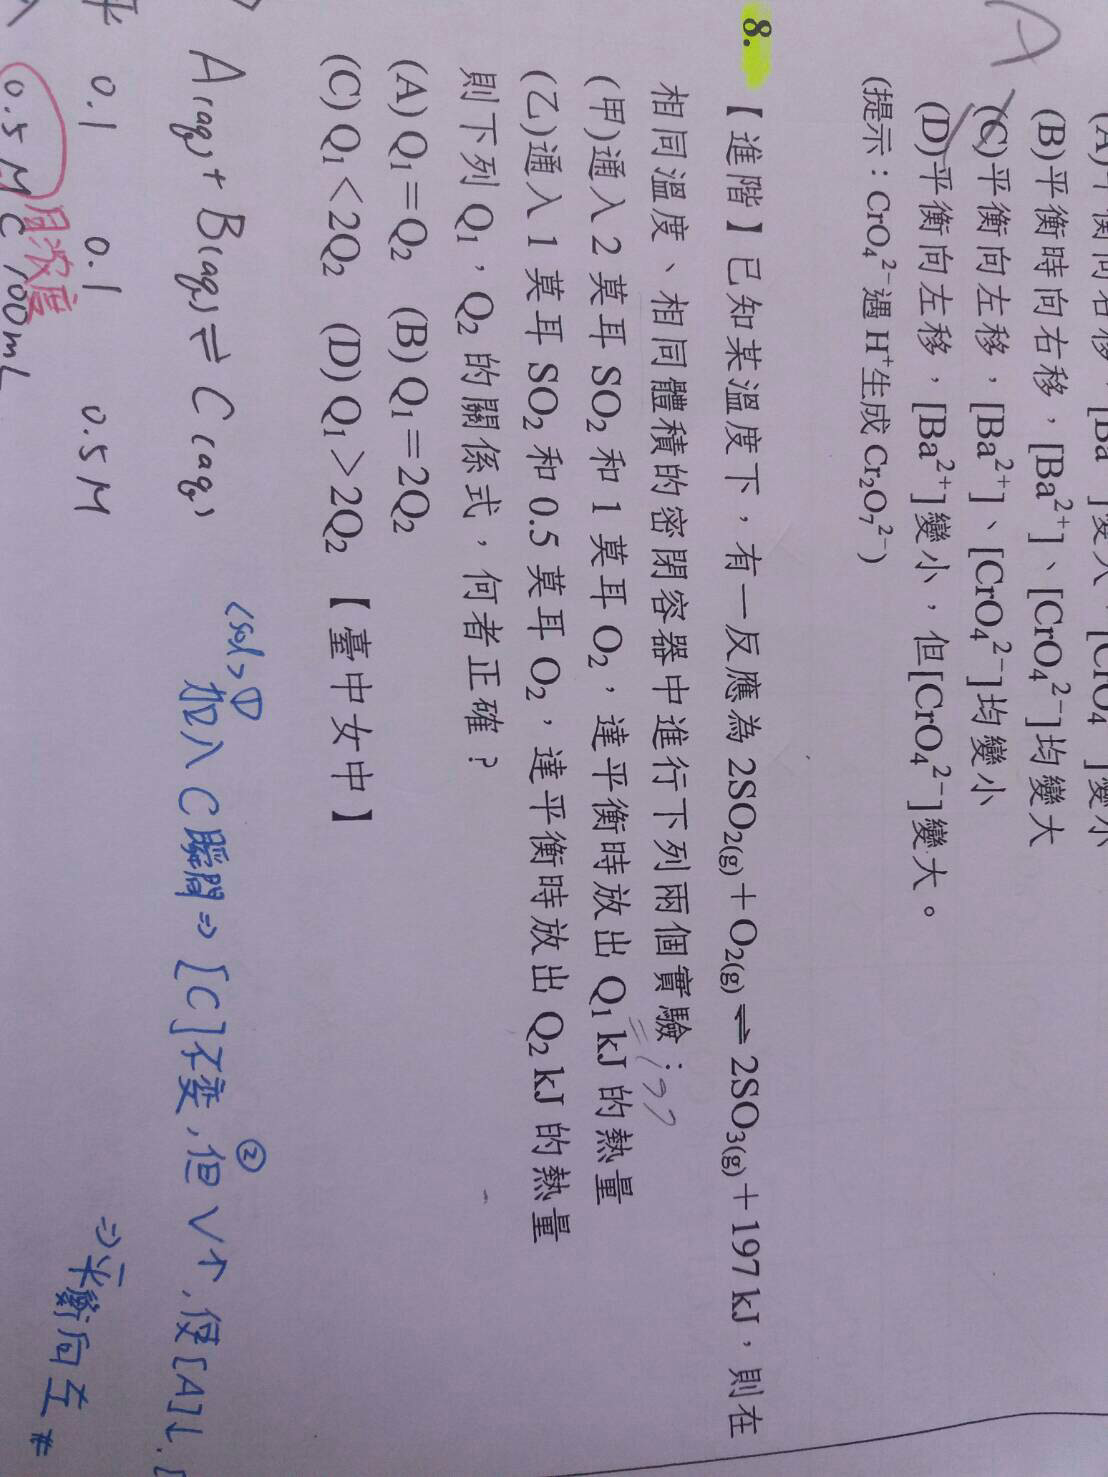 (B)平衡時向右移，[Ba²⁺]、[CrO₄²⁻]均變大
(C)平衡向左移，[Ba²⁺]、[CrO₄²⁻]均變小
(D)平衡向左移，[Ba²⁺]變小，但[CrO₄²⁻]變大。
(提示：CrO₄²⁻遇H⁺生成Cr₂O₇²⁻)
A
8.【進階】已知某溫度下，有一反應為 2SO₂(g)＋O₂(g)⇌2SO₃(g)＋197 kJ，則在
相同溫度、相同體積的密閉容器中進行下列兩個實驗：
(甲)通入 2 莫耳 SO₂ 和 1 莫耳 O₂，達平衡時放出 Q₁ kJ 的熱量
(乙)通入 1 莫耳 SO₂ 和 0.5 莫耳 O₂，達平衡時放出 Q₂ kJ 的熱量
則下列 Q₁，Q₂ 的關係式，何者正確？
(A) Q₁＝Q₂ (B) Q₁＝2Q₂
(C) Q₁＜2Q₂ (D) Q₁＞2Q₂【臺中女中】
A(aq)＋B(aq)⇌C(aq)
0.1 0.1 0.5M
0.5 M C 100mL
同濃度
<sol> ① 加入C瞬間⇒[C]不变,但② V↑,使[A]↓.[
⇒平衡向左#